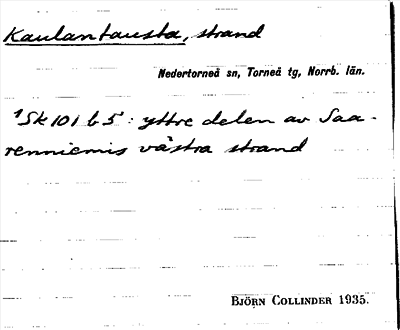 Kaulantausta, strand
Nedertorneå sn, Torneå tg, Norrb. län.
1Sk 101 b 5: yttre delen av Saa-
renniemis västra strand
BJÖRN COLLINDER 1935.